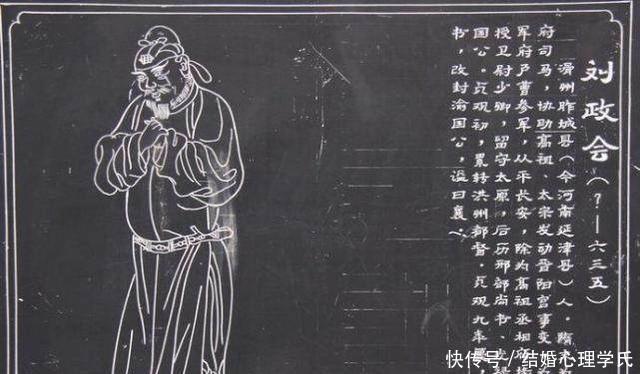 刘政会（？——六三五）
滑州胙城县（今河南延津县）人。隋末
府司马，协助高祖、太宗发动晋阳宫事变
军府户曹参军，从平长安，除为高祖丞相府
授卫尉少卿，留守太原，后历刑部尚书、
国公。贞观初，累转洪州都督。贞观九年
书，改封渝国公，谥曰襄。
快传号/结婚心理学氏